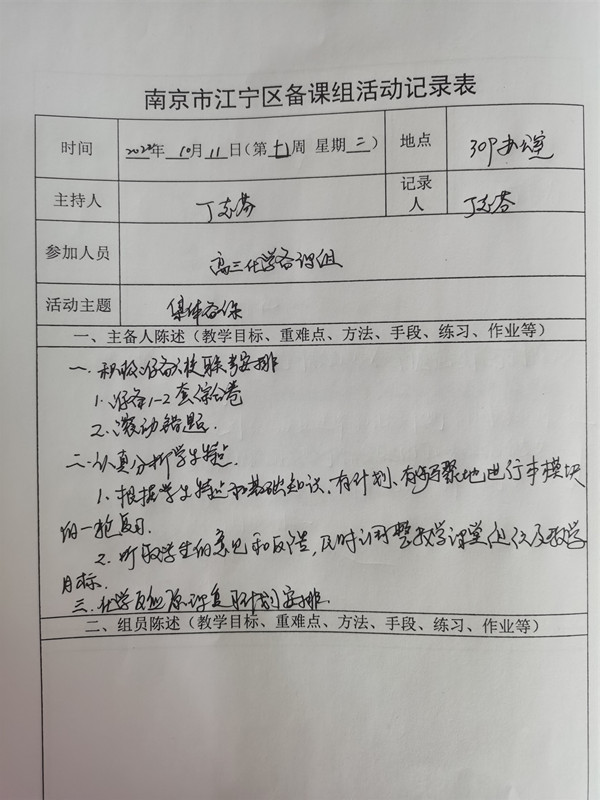 南京市江宁区备课组活动记录表
时间 2022年 10月 11日(第七周 星期二) 地点 309办公室
主持人 丁志芬 记录人 丁志芬
参加人员 高三化学备课组
活动主题 集体备课
一、主备人陈述(教学目标、重难点、方法、手段、练习、作业等)
一. 积极准备八校联考安排
1. 准备1-2套综合卷
2. 滚动错题
二. 认真分析学生特点.
1. 根据学生特点和基础知识、有计划、有步骤地进行本模块
的一轮复习.
2. 听取学生的意见和反馈,及时调整教学课堂 以及教学
目标.
三. 化学反应原理复习计划安排.
二、组员陈述(教学目标、重难点、方法、手段、练习、作业等)